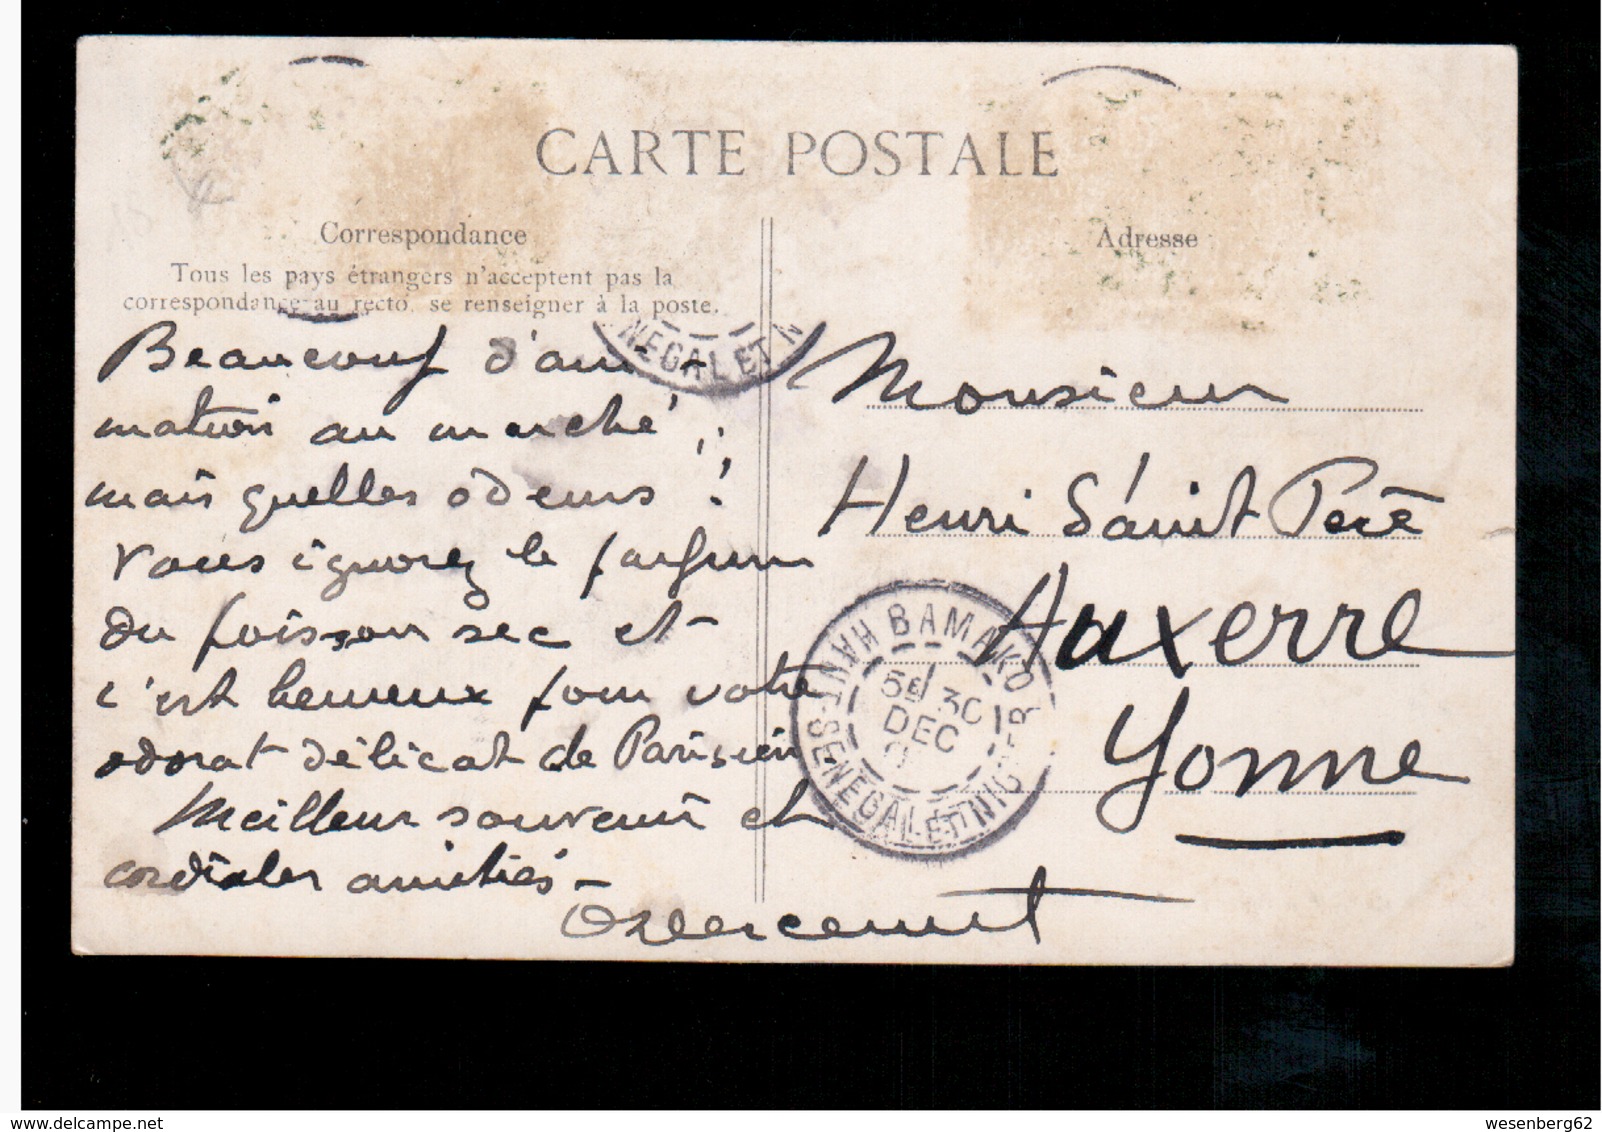 CARTE POSTALE
Correspondance
Adresse
Tous les pays étrangers n'acceptent pas la
correspondance au recto, se renseigner à la poste.
Beaucoup d'ani-
mation au marché,
mais quelles odeurs !
Vous ignorez le parfum
du poisson sec et
c'est heureux pour votre
odorat délicat de Parisien
Meilleur souvenir et
cordiales amitiés -
NEGAL ET N
Monsieur
Henri Saint Père
Auxerre
Yonne
BAMAKO
HAUT-SENEGAL ET NIGER
5E 30
DEC
delcampe.net
wesenberg62